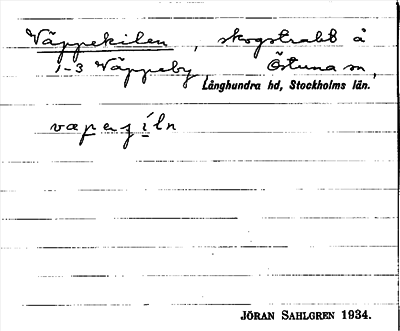 Väppekilen, skogstrabb å
1-3 Väppeby, Östuna sn,
Långhundra hd, Stockholms län.
væpeʒíln
JÖRAN SAHLGREN 1934.